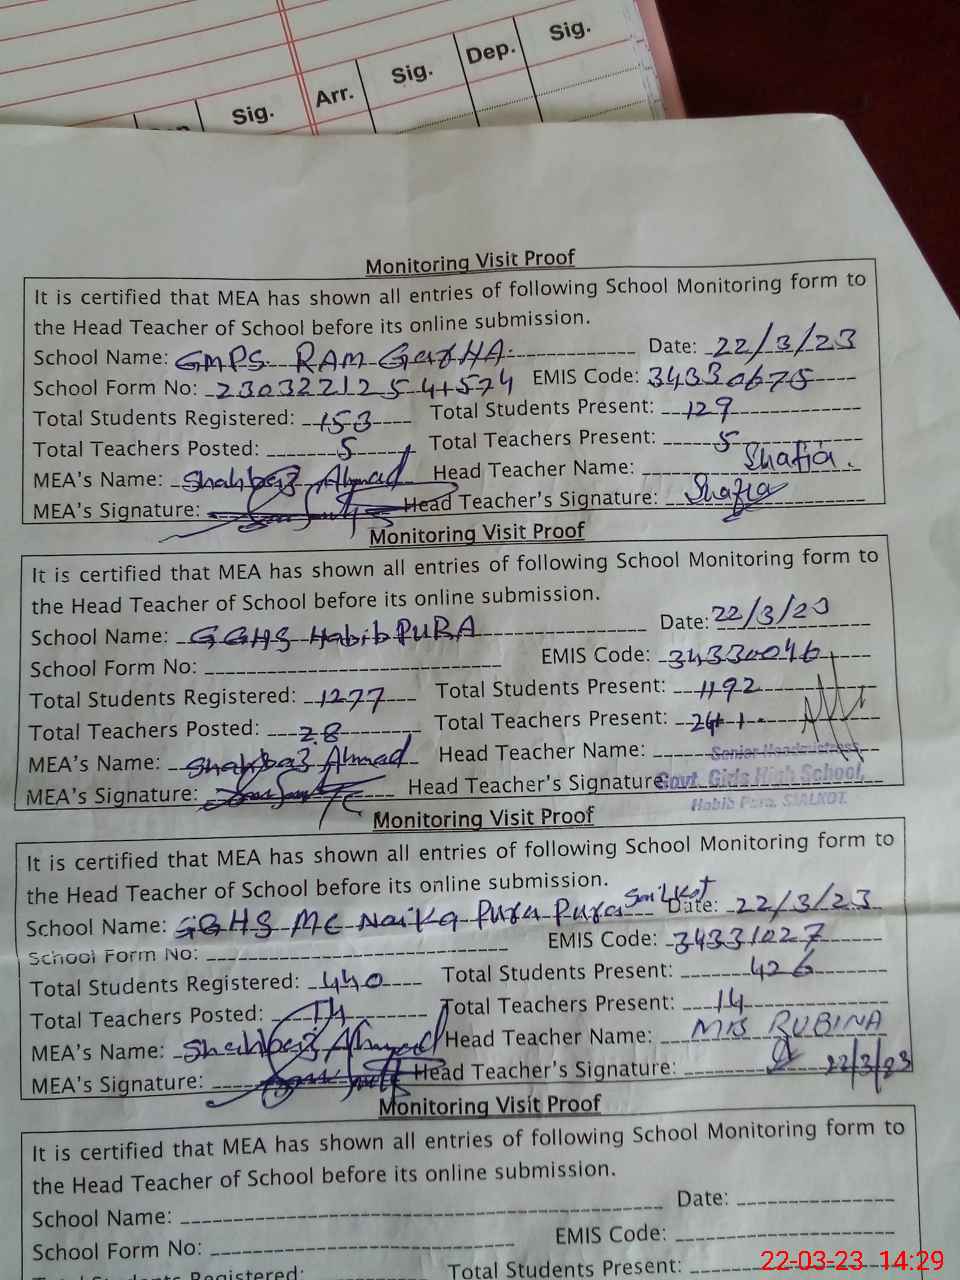 Sig. Arr. Sig. Dep. Sig.
Monitoring Visit Proof
It is certified that MEA has shown all entries of following School Monitoring form to
the Head Teacher of School before its online submission.
School Name: GMPS RAM GarHA Date: 22/3/23
School Form No: EMIS Code: 34330675
Total Students Registered: 153 Total Students Present: 129
Total Teachers Posted: 5 Total Teachers Present: 5
MEA's Name: Shahbaz Ahmad Head Teacher Name: Shafia.
MEA's Signature: Head Teacher's Signature: Shafia
Monitoring Visit Proof
It is certified that MEA has shown all entries of following School Monitoring form to
the Head Teacher of School before its online submission.
School Name: GGHS Habib PURA Date: 22/3/23
School Form No: EMIS Code: 34330046
Total Students Registered: 1277 Total Students Present: 1192
Total Teachers Posted: 28 Total Teachers Present:
MEA's Name: Shahbaz Ahmad Head Teacher Name:
Senior Headmistress
MEA's Signature: Head Teacher's Signature Govt. Girls High School,
Habib Pura, SIALKOT.
Monitoring Visit Proof
It is certified that MEA has shown all entries of following School Monitoring form to
the Head Teacher of School before its online submission.
School Name: GGHS MC Naika Pura Pura Date: 22/3/23
School Form No: EMIS Code: 34331027
Total Students Registered: 440 Total Students Present: 426
Total Teachers Posted: 14 Total Teachers Present: 14
MEA's Name: Shahbaz Ahmad Head Teacher Name: MIS RUBINA
MEA's Signature: Head Teacher's Signature: 22/3/23
Monitoring Visit Proof
It is certified that MEA has shown all entries of following School Monitoring form to
the Head Teacher of School before its online submission.
School Name: Date:
School Form No: EMIS Code:
Total Students Registered: Total Students Present:
22-03-23 14:29